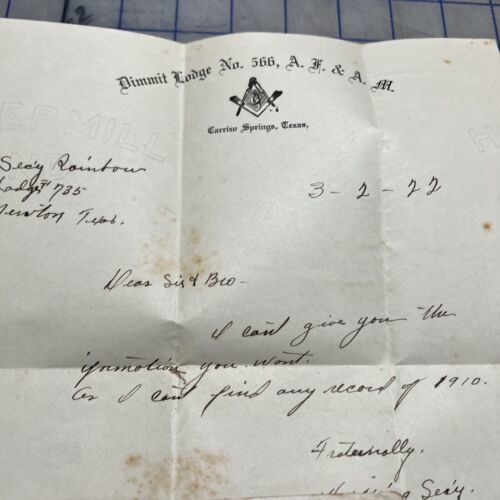 Dimmit Lodge No. 566, A. F. & A. M.
G
Carrizo Springs, Texas,
ERMILL
H
Sec'y Rainbow
Lodge # 735
Newton Texas.
3-2-22
Dear Sir & Bro -
I can't give you the
information you want.
as I can't find any record of 1910.
Fraternally,
Sec'y.